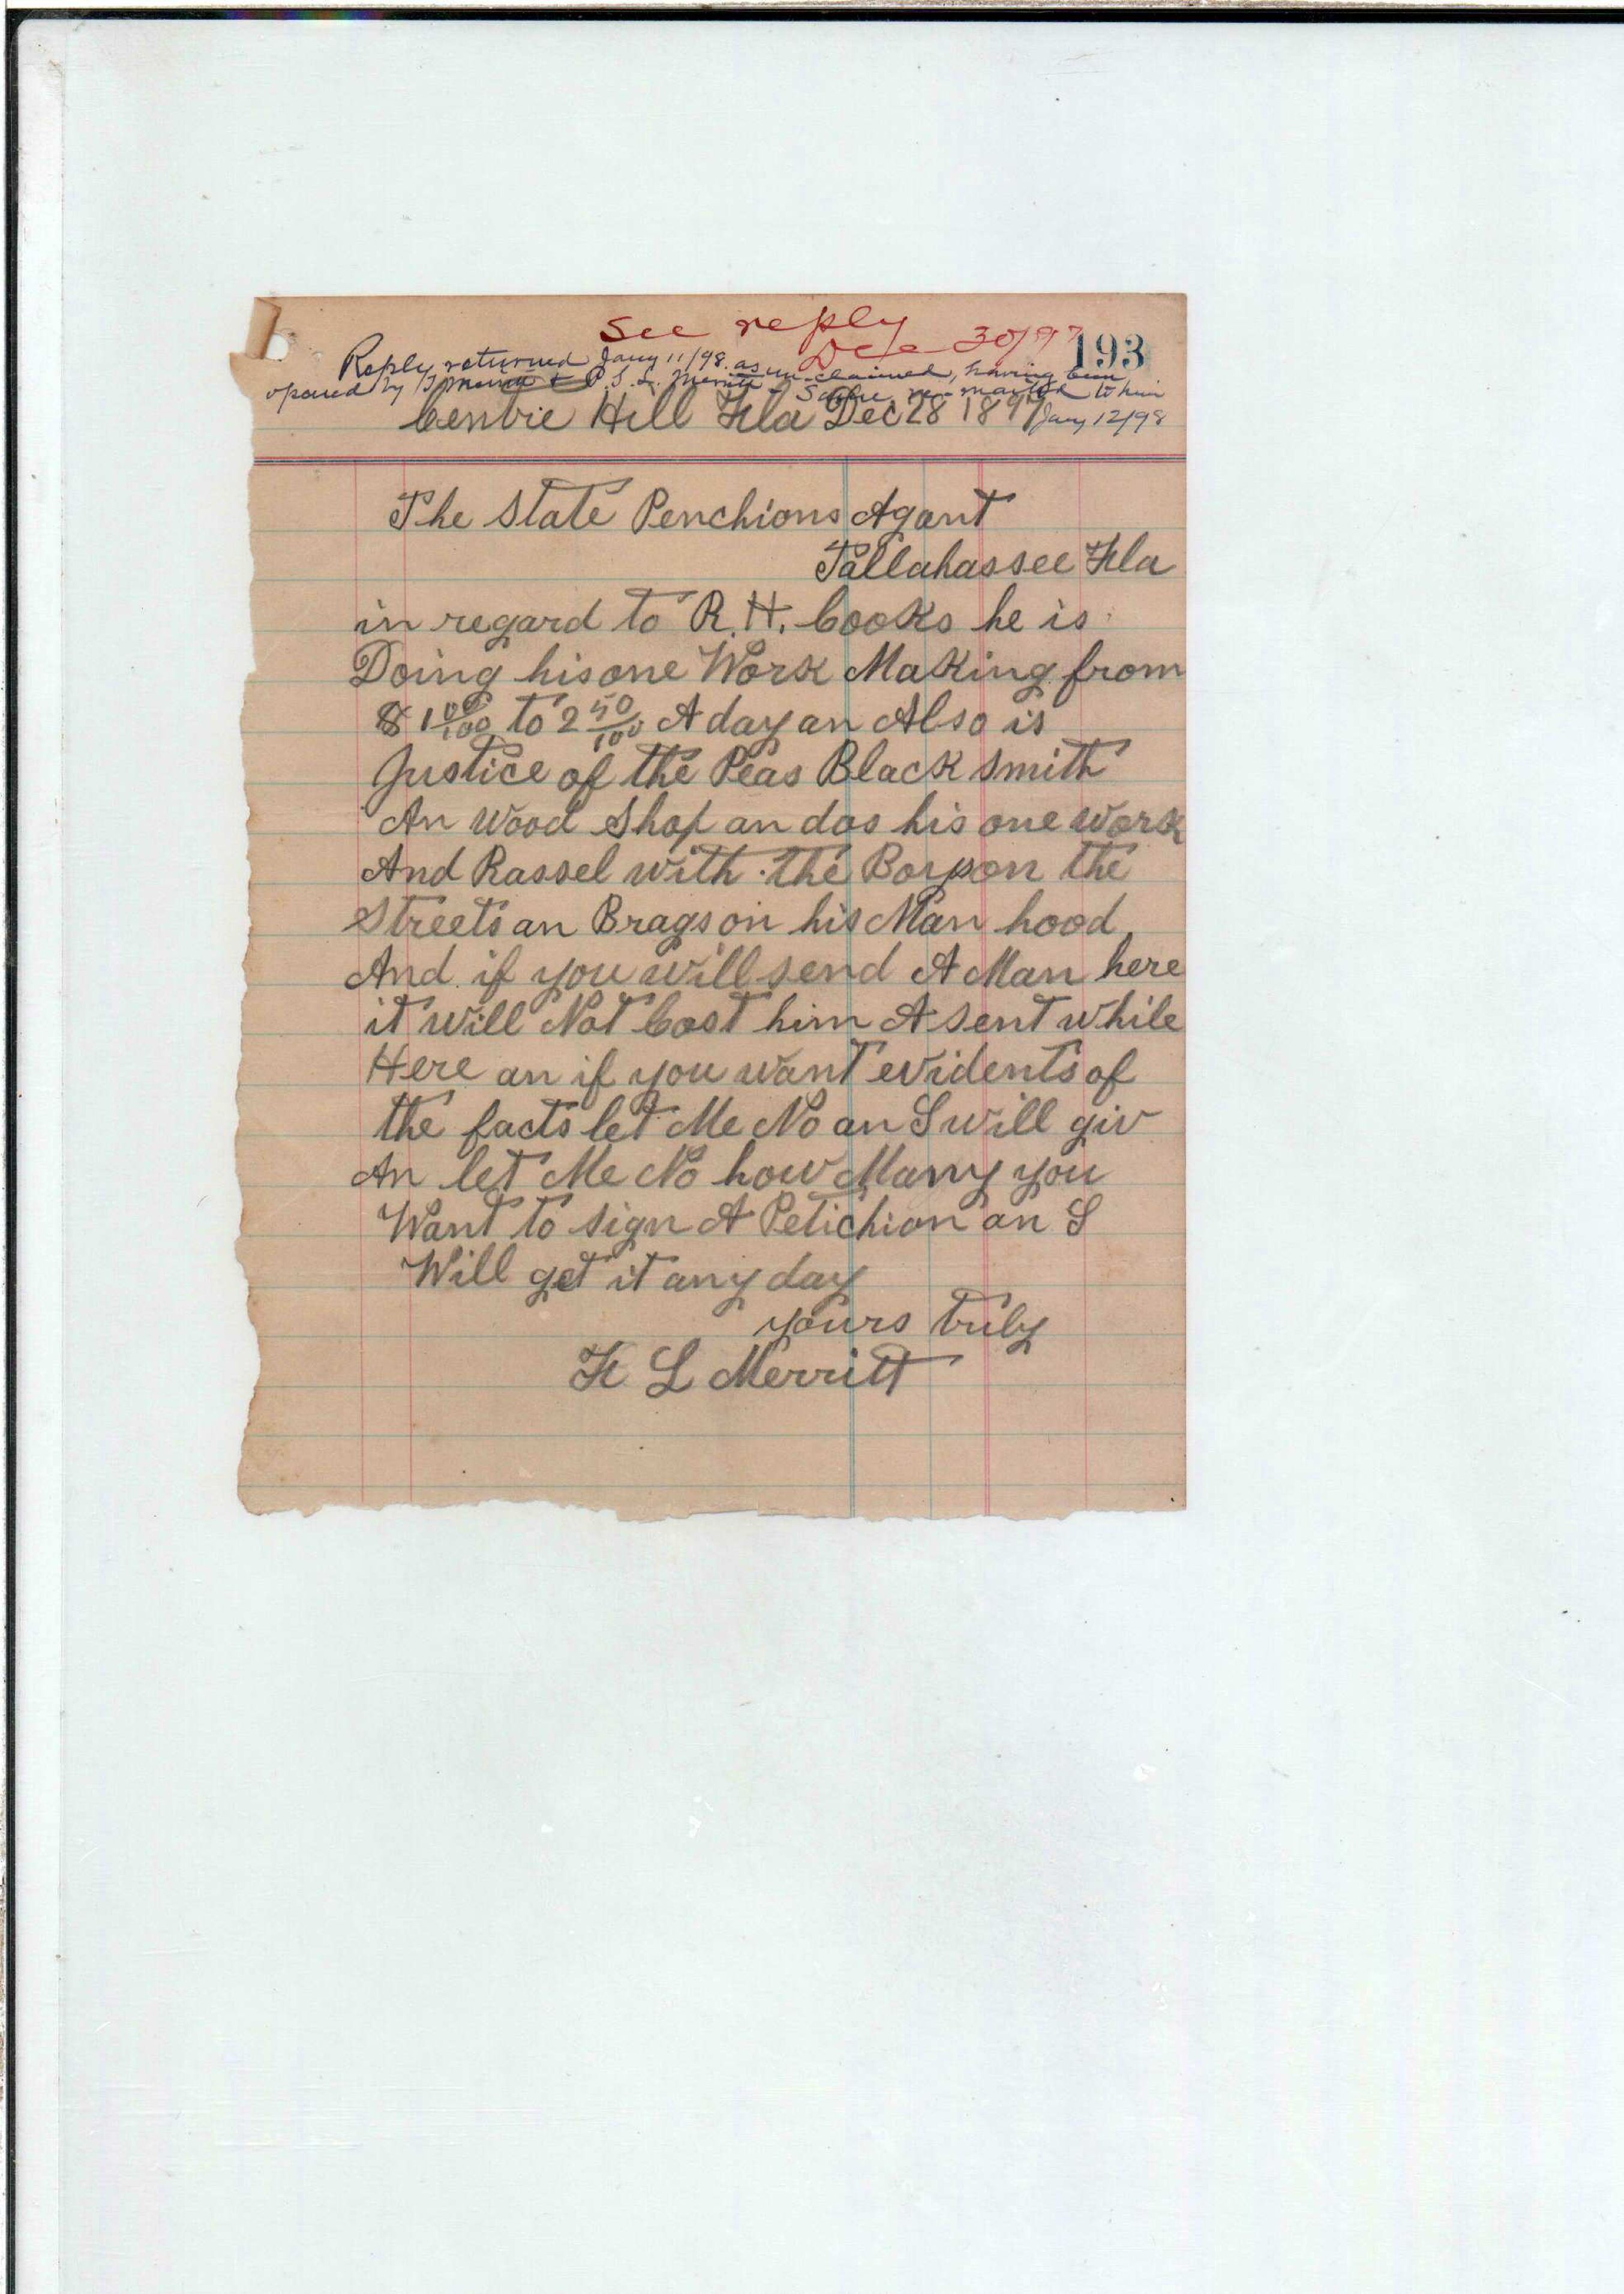 See reply
Dec 30/97
193
Reply returned Jany 11/98 as un-claimed, having been
opened by & P. S. L. Merritt - Same re-mailed to him
Jany 12/98
Centre Hill Fla Dec 28 1897
The State Penchions Agant
Tallahassee Fla
in regard to R. H. Cooks he is
Doing his one Work Making from
$ 1 00/100 to 2 50/100 A day an Also is
Justice of the Peas Black smith
An Wood Shop an dos his one work
And Rassel with the Boys on the
Streets an Brags on his Man hood
And if you will send A Man here
it will Not Cost him A sent while
Here an if you want evidents of
the facts let Me No an I will giv
An let Me No how Many you
Want to sign A Petichion an I
Will get it any day
yours truly
F L Merritt